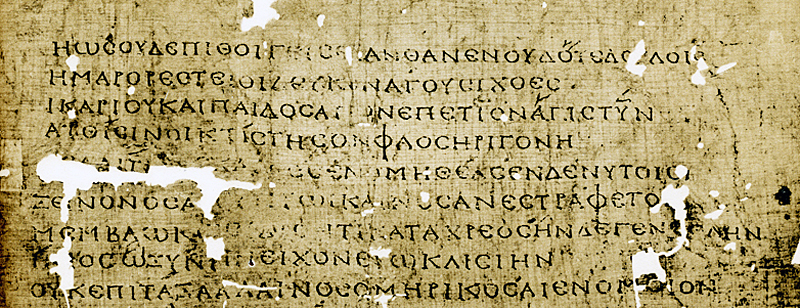 ΗωϹΟΥΔΕΠΙΘΟΙΓΙϹΕΛΑΝΘΑΝΕΝΟΥΔΟΤΕΔΟΥΛΟΙϹ
ΗΜΑΡΟΡΕϹΤΕΙΟΙΛΕΥΚΟΝΑΓΟΥϹΙΧΟΕϹ
ΙΚΑΡΙΟΥΚΑΙΠΑΙΔΟϹΑΓωΝΕΠΕΤΪΟΝΑΓΙϹΤΫΝ
ΑΤΘΙϹΙΝΟΙΚΤΙϹΤΗϹΟΝΦΑΟϹΗΡΙΓΟΝΗ
ΟΜΗΘΕΑϹΕΝΔΕΝΥΤΟΙϹΙ
ΞΕΙΝΟΝΟϹΑ ΚΑΙΝΟϹΑΝΕϹΤΡΑΦΕΤΟ
ΤΙΚΑΤΑΧΡΕΟϹΗΝΔΕΓΕΝΕΘΛΗΝ
ΟϹωΞΥΝΗΝΕΙΧΟΝΕΓωΚΛΙϹΙΗΝ
ΟΥΚΕΠΙΤΑΞΑΛΛΑΙΝΟϹΟΜΗΡΙΚΟϹΑΙΕΝΟΜΟΙΟΝ